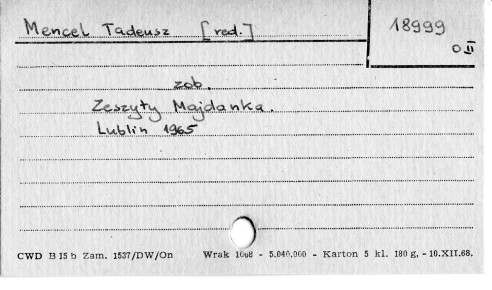 Mencel Tadeusz [red.]
18999
O II
zob.
Zeszyty Majdanka.
Lublin 1965
CWD B 15 b Zam. 1537/DW/On Wrak 1068 - 5.040.000 - Karton 5 kl. 180 g, - 10.XII.68.